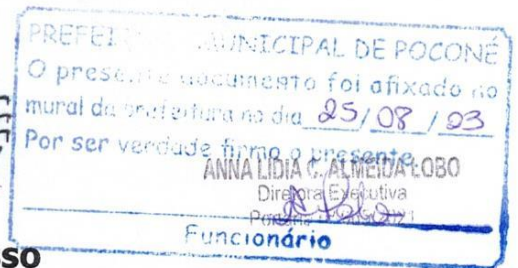 PREFEI MUNICIPAL DE POCONÉ
O presente documento foi afixado no
mural da prefeitura no dia 25/08/23
Por ser verdade firmo o presente.
ANNA LIDIA C. ALMEIDA LOBO
Diretora Executiva
Funcionário
SO